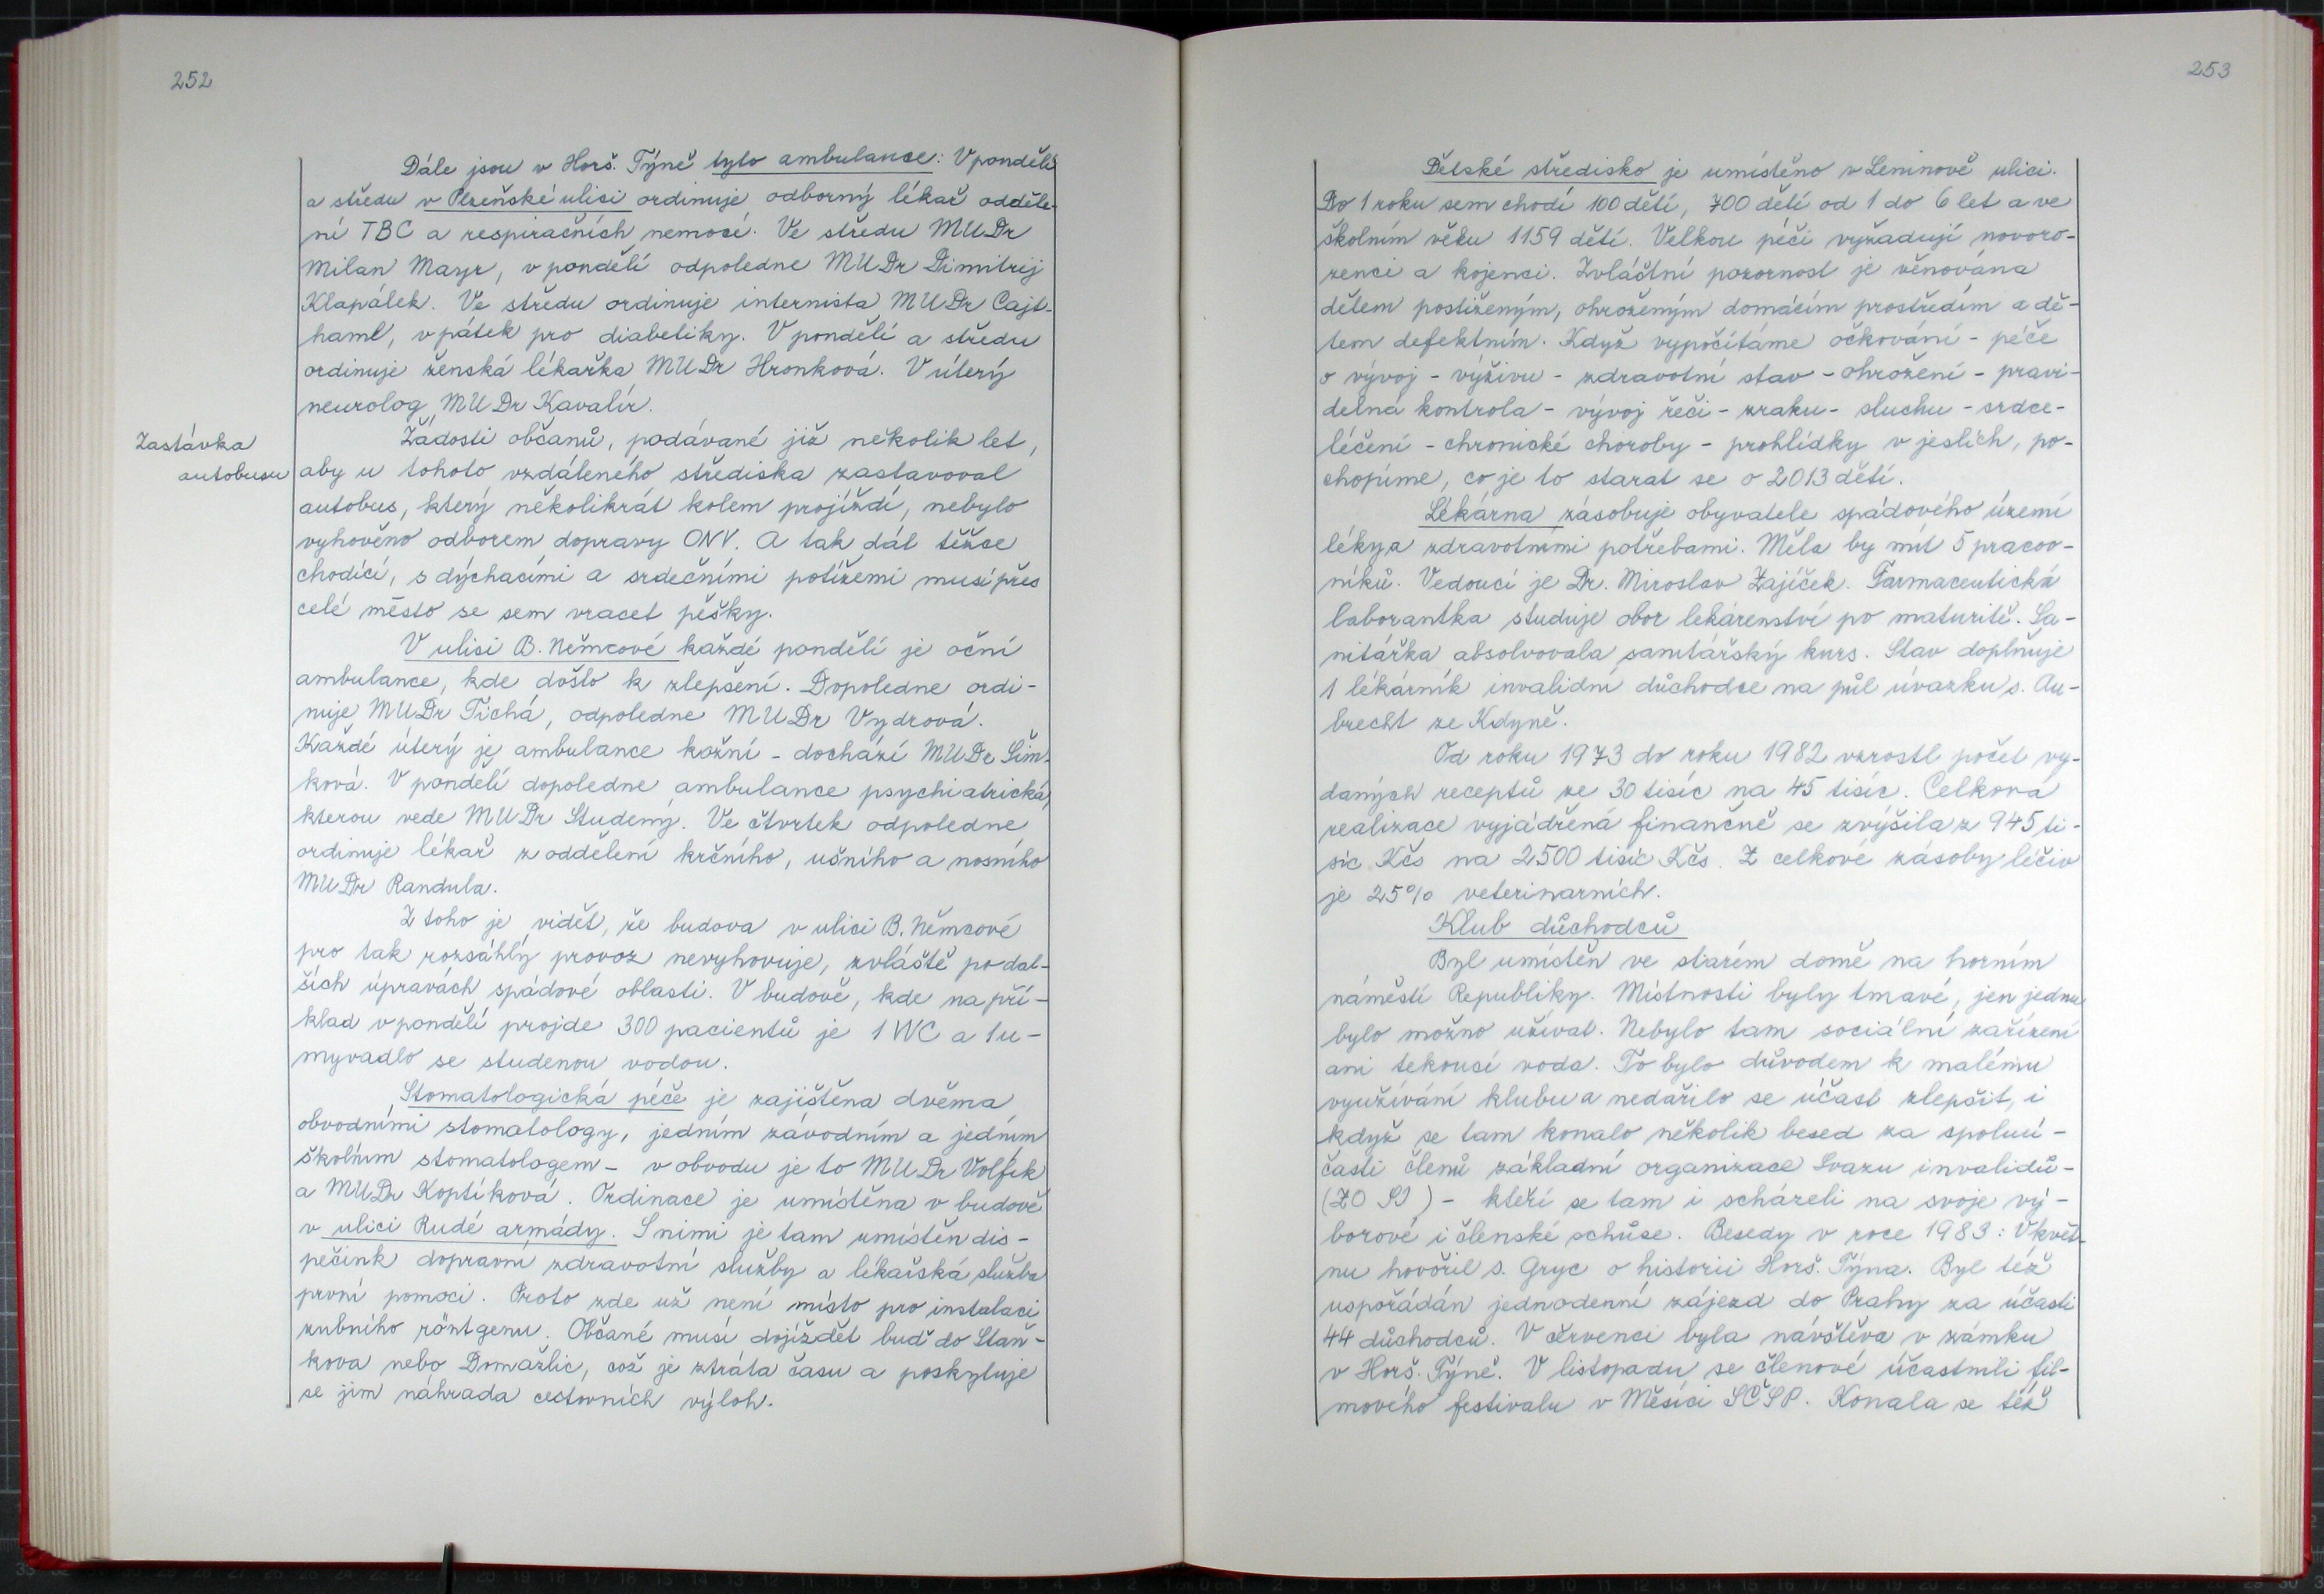 252
Dále jsou v Horš. Týně tyto ambulance: V pondělí
a středu v Plzeňské ulici ordinuje odborný lékař odděle-
ní TBC a respiračních nemocí. Ve středu MUDr
Milan Mayr, v pondělí odpoledne MUDr Dimitrij
Klapálek. Ve středu ordinuje internista MUDr Cajt-
haml, v pátek pro diabetiky. V pondělí a středu
ordinuje ženská lékařka MUDr Hronková. V úterý
neurolog MUDr Kavalír.
Zastávka
autobusu
Žádosti občanů, podávané již několik let,
aby u tohoto vzdáleného střediska zastavoval
autobus, který několikrát kolem projíždí, nebylo
vyhověno odborem dopravy ONV. A tak dál těžce
chodící, s dýchacími a srdečními potížemi musí přes
celé město se sem vracet pěšky.
V ulici B. Němcové každé pondělí je oční
ambulance, kde došlo k zlepšení. Dopoledne ordi-
nuje MUDr Tichá, odpoledne MUDr Vydrová.
Každé úterý je ambulance kožní - dochází MUDr Šim-
ková. V pondělí dopoledne ambulance psychiatrická,
kterou vede MUDr Studený. Ve čtvrtek odpoledne
ordinuje lékař z oddělení krčního, ušního a nosního
MUDr Randula.
Z toho je vidět, že budova v ulici B. Němcové
pro tak rozsáhlý provoz nevyhovuje, zvláště po dal-
ších úpravách spádové oblasti. V budově, kde na pří-
klad v pondělí projde 300 pacientů je 1 WC a 1 u-
myvadlo se studenou vodou.
Stomatologická péče je zajištěna dvěma
obvodními stomatology, jedním závodním a jedním
školním stomatologem - v obvodu je to MUDr Volfík
a MUDr Koptíková. Ordinace je umístěna v budově
v ulici Rudé armády. S nimi je tam umístěn dis-
pečink dopravní zdravotní služby a lékařská služba
první pomoci. Proto zde už není místo pro instalaci
zubního röntgenu. Občané musí dojíždět buď do Staň-
kova nebo Domažlic, což je ztráta času a poskytuje
se jim náhrada cestovních výloh.
253
Dětské středisko je umístěno v Leninově ulici.
Do 1 roku sem chodí 100 dětí, 700 dětí od 1 do 6 let a ve
školním věku 1159 dětí. Velkou péči vyžadují novoro-
zenci a kojenci. Zvláštní pozornost je věnována
dětem postiženým, ohroženým domácím prostředím a dě-
tem defektním. Když vypočítáme očkování - péče
o vývoj - výživu - zdravotní stav - ohrožení - pravi-
delná kontrola - vývoj řeči - zraku - sluchu - srdce -
léčení - chronické choroby - prohlídky v jeslích, po-
chopíme, co je to starat se o 2013 dětí.
Lékárna zásobuje obyvatele spádového území
léky a zdravotními potřebami. Měla by mít 5 pracov-
níků. Vedoucí je Dr. Miroslav Zajíček. Farmaceutická
laborantka studuje obor lekárenství po maturitě. Sa-
nitářka absolvovala sanitářský kurs. Stav doplňuje
1 lékárník invalidní důchodce na půl úvazku s. Au-
brecht ze Kdyně.
Od roku 1973 do roku 1982 vzrostl počet vy-
daných receptů ze 30 tisíc na 45 tisíc. Celková
realizace vyjádřena finančně se zvýšila z 945 ti-
síc Kčs na 2500 tisíc Kčs. Z celkové zásoby léčiv
je 25% veterinarních.
Klub důchodců
Byl umístěn ve starém domě na horním
náměstí Republiky. Místnosti byly tmavé, jen jednu
bylo možno užívat. Nebylo tam sociální zařízení
ani tekoucí voda. To bylo důvodem k malému
využívání klubu a nedařilo se účast zlepšit, i
když se tam konalo několik besed za spoluú-
časti členů základní organizace Svazu invalidů -
(ZO SI) - kteří se tam i scházeli na svoje vý-
borové i členské schůse. Besedy v roce 1983: V květ-
nu hovořil s. Gryc o historii Horš. Týna. Byl též
uspořádán jednodenní zájezd do Prahy za účasti
44 důchodců. V červenci byla návštěva v zámku
v Horš. Týně. V listopadu se členové účastnili fil-
mového festivalu v Měsíci SČSP. Konala se též